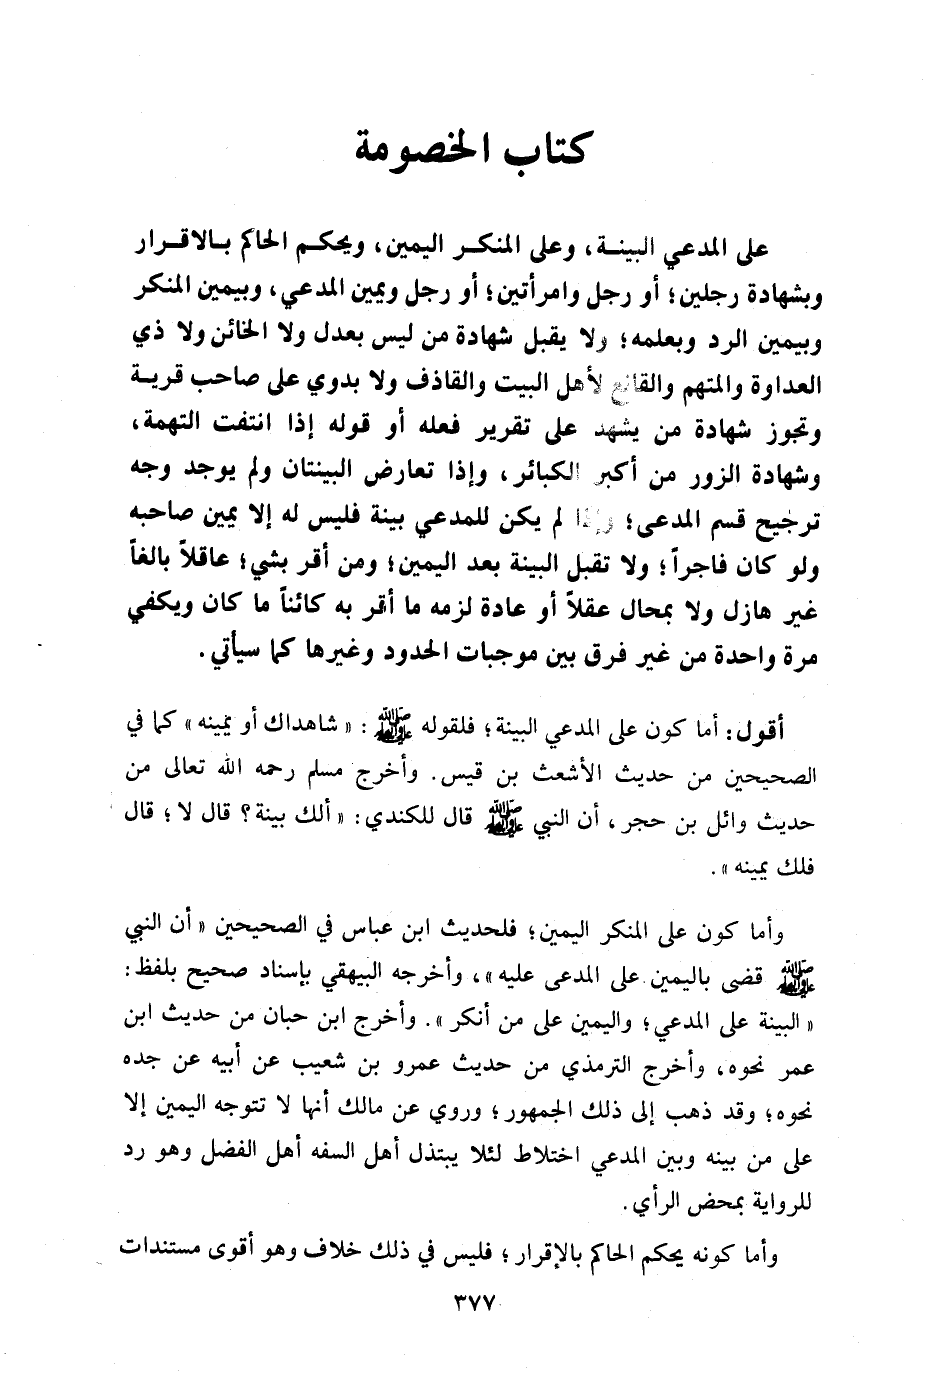 كتاب الخصومة
على المدعي البينة، وعلى المنكر اليمين، ويحكم الحاكم بالاقرار
وبشهادة رجلين؛ أو رجل وامرأتين؛ أو رجل ويمين المدعي، وبيمين المنكر
وبيمين الرد وبعلمه؛ ولا يقبل شهادة من ليس بعدل ولا الخائن ولا ذي
العداوة والمتهم والقانع لأهل البيت والقاذف ولا بدوي على صاحب قرية
وتجوز شهادة من يشهد على تقرير فعله أو قوله إذا انتفت التهمة،
وشهادة الزور من أكبر الكبائر، وإذا تعارض البينتان ولم يوجد وجه
ترجيح قسم المدعى؛ وإذا لم يكن للمدعي بينة فليس له إلا يمين صاحبه
ولو كان فاجراً؛ ولا تقبل البينة بعد اليمين؛ ومن أقر بشيء؛ عاقلاً بالغاً
غير هازل ولا بمحال عقلاً أو عادة لزمه ما أقر به كائناً ما كان ويكفي
مرة واحدة من غير فرق بين موجبات الحدود وغيرها كما سيأتي.
أقول: أما كون على المدعي البينة؛ فلقوله ﷺ: «شاهداك أو يمينه» كما في
الصحيحين من حديث الأشعث بن قيس. وأخرج مسلم رحمه الله تعالى من
حديث وائل بن حجر، أن النبي ﷺ قال للكندي: «ألك بينة؟ قال لا؛ قال
فلك يمينه».
وأما كون على المنكر اليمين؛ فلحديث ابن عباس في الصحيحين «أن النبي
ﷺ قضى باليمين على المدعى عليه»، وأخرجه البيهقي بإسناد صحيح بلفظ:
«البينة على المدعي؛ واليمين على من أنكر». وأخرج ابن حبان من حديث ابن
عمر نحوه، وأخرج الترمذي من حديث عمرو بن شعيب عن أبيه عن جده
نحوه؛ وقد ذهب إلى ذلك الجمهور؛ وروي عن مالك أنها لا تتوجه اليمين إلا
على من بينه وبين المدعي اختلاط لئلا يبتذل أهل السفه أهل الفضل وهو رد
للرواية بمحض الرأي.
وأما كونه يحكم الحاكم بالإقرار؛ فليس في ذلك خلاف وهو أقوى مستندات
٣٧٧